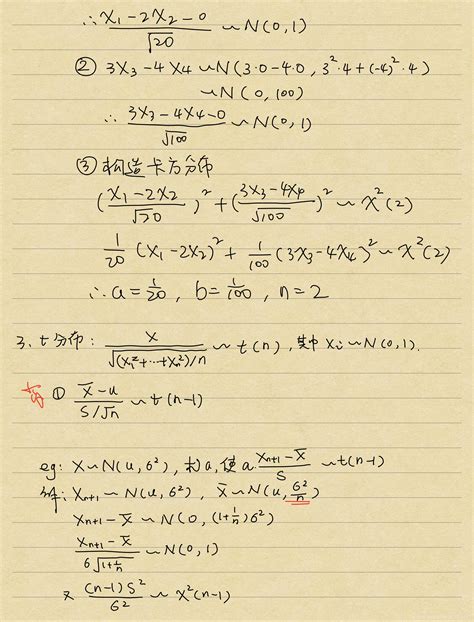 ∴ (X₁-2X₂-0)/√20 ~ N(0,1)
② 3X₃-4X4 ~N(3·0-4·0, 3²·4+(-4)²·4)
~N(0,100)
∴ (3X₃-4X4-0)/√100 ~N(0,1)
③ 构造卡方分布
((X₁-2X₂)/√20)²+((3X₃-4X4)/√100)² ~ X²(2)
1/20 (X₁-2X₂)² + 1/100 (3X₃-4X4)² ~ X²(2)
∴ a=1/20, b=1/100, n=2
3、t分布: X/√((X₁²+…+Xn²)/n) ~ t(n), 其中 Xi~N(0,1).
① (X̄-u)/(S/√n) ~t(n-1)
eg: X~N(u,6²), 求a,使a·(Xn+1-X̄)/S ~t(n-1)
解: Xn+1 ~ N(u,6²), X̄~N(u,6²/n)
Xn+1-X̄ ~ N(0,(1+1/n)6²)
(Xn+1-X̄)/(6√(1+1/n)) ~N(0,1)
又 (n-1)S²/6² ~ X²(n-1)